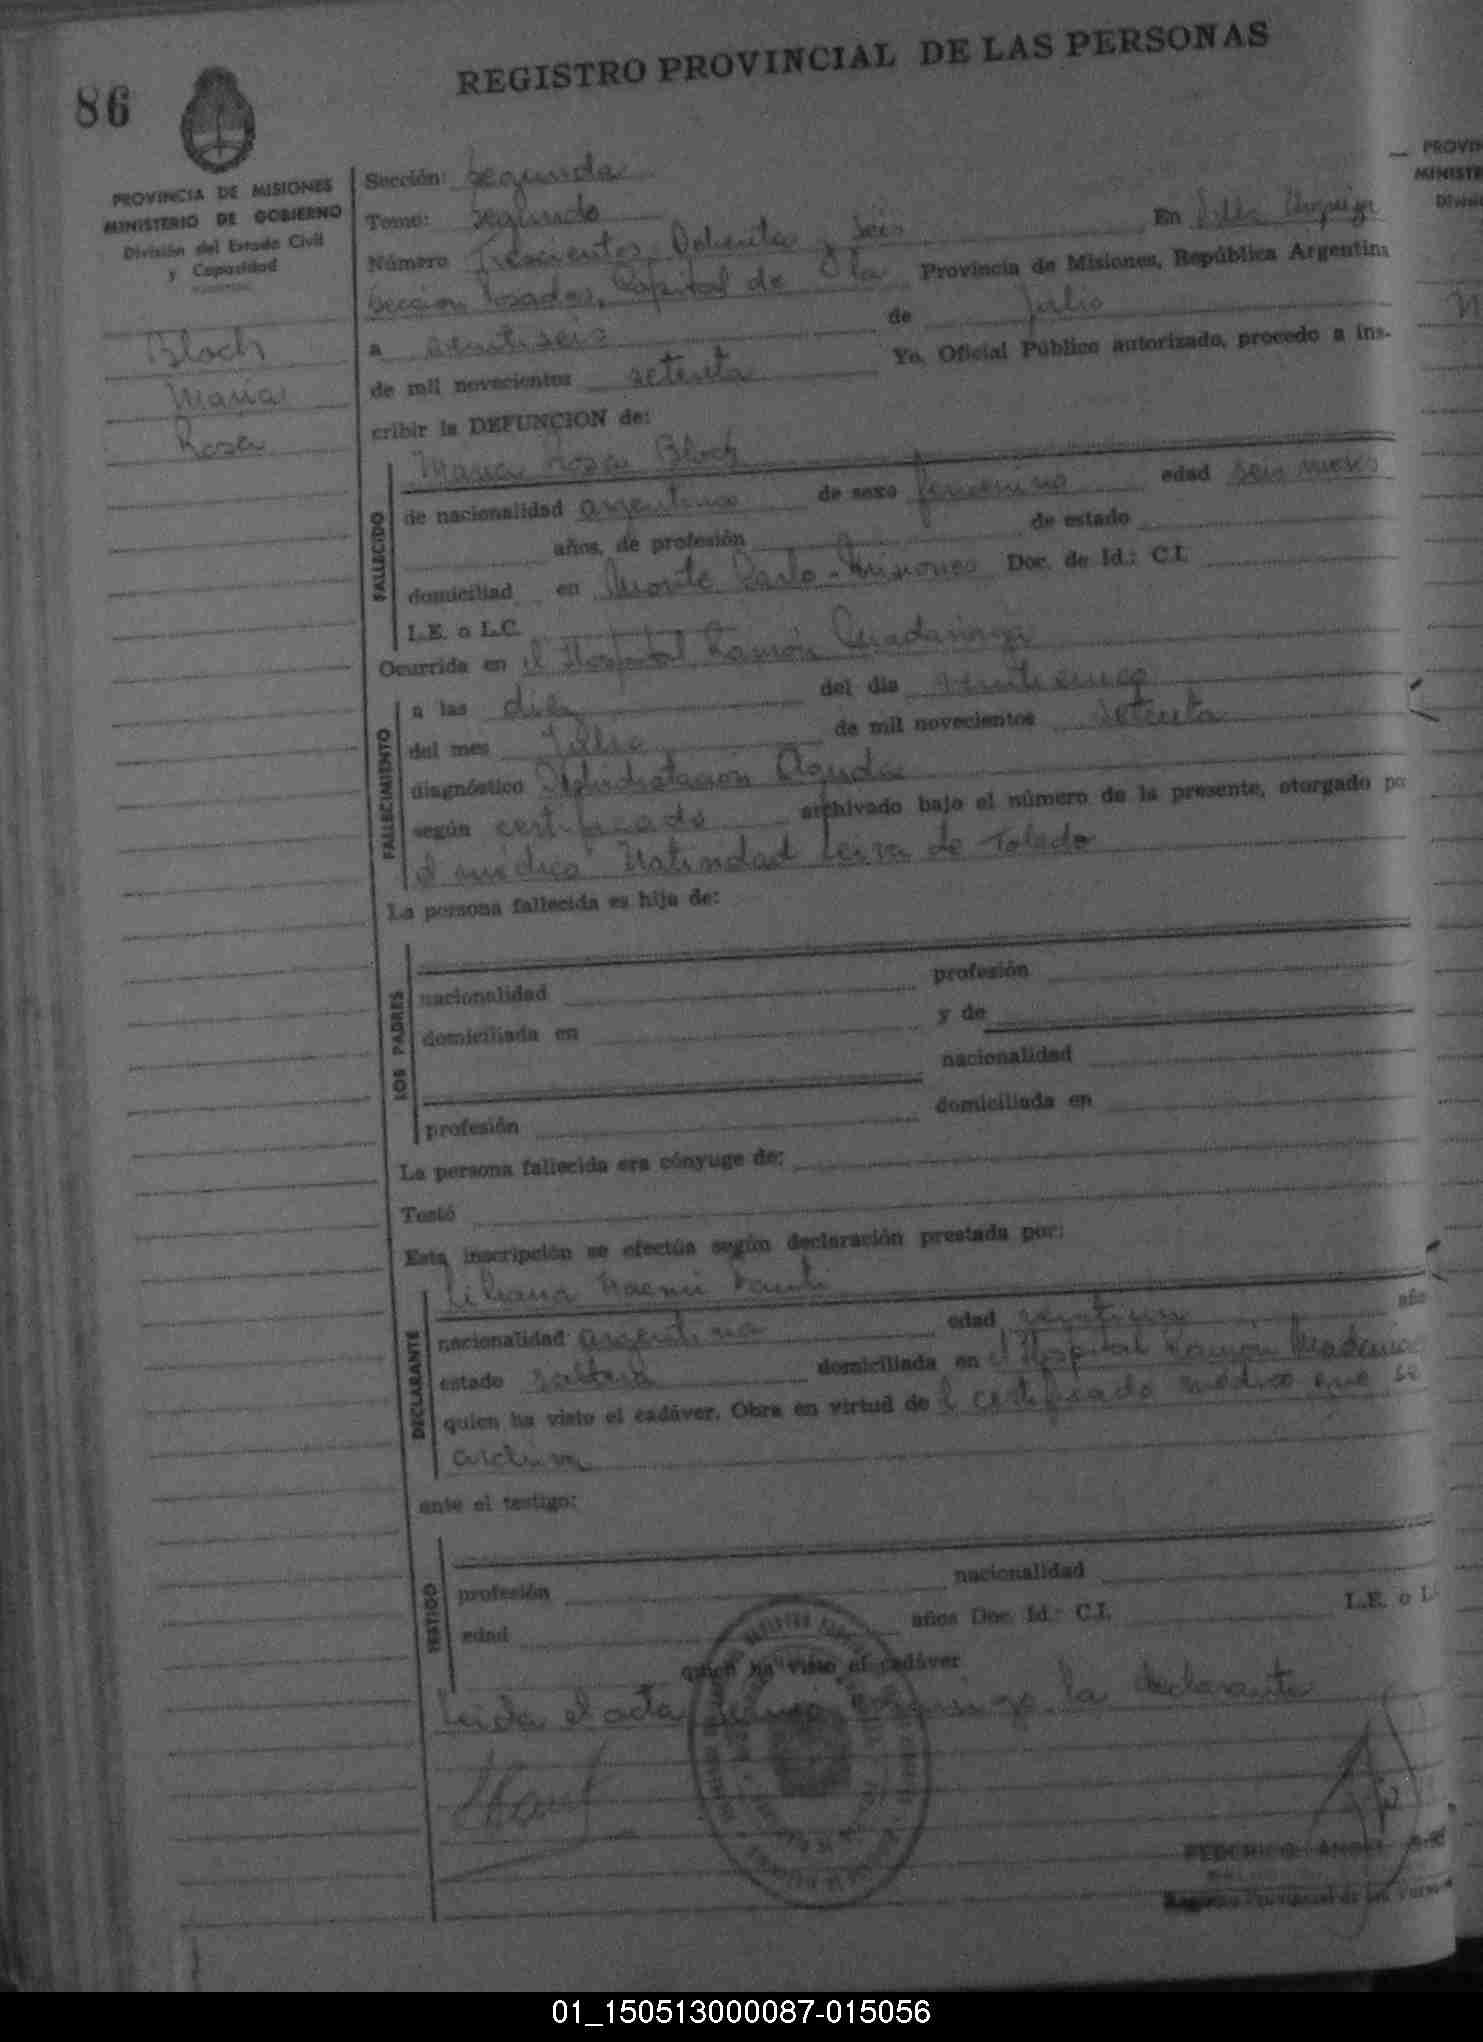 REGISTRO PROVINCIAL DE LAS PERSONAS
86
PROVINCIA DE MISIONES
MINISTERIO DE GOBIERNO
División del Estado Civil
y Capacidad
Bloch
María
Rosa
Sección: Segunda
Tomo: segundo
En Villa Urquiza
Número Trescientos Ochenta y seis
Seccion Posadas, Capital de la Provincia de Misiones, República Argentina
a veintiseis de Julio
de mil novecientos setenta Yo, Oficial Público autorizado, procedo a ins-
cribir la DEFUNCION de:
FALLECIDO
María Rosa Bloch
de nacionalidad argentina de sexo femenino edad seis meses
años, de profesión de estado
domiciliad en Monte Carlo - Misiones Doc. de Id.: C.I.
L.E. o L.C.
Ocurrida en el Hospital Ramón Madariaga
FALLECIMIENTO
a las diez del día veinticinco
del mes Julio de mil novecientos setenta
diagnóstico Deshidratacion Aguda
según certificado archivado bajo el número de la presente, otorgado po
el médico Natividad Leiva de Toledo
La persona fallecida es hija de:
LOS PADRES
nacionalidad profesión
domiciliada en y de
nacionalidad
profesión domiciliada en
La persona fallecida era cónyuge de:
Testó
Esta inscripción se efectúa según declaración prestada por:
DECLARANTE
Liliana Noemi
nacionalidad argentina edad año
estado soltera domiciliada en el Hospital Ramón Madariaga
quien ha visto el cadáver. Obra en virtud de l certificado médico que se
archiva
ante el testigo:
TESTIGO
profesión nacionalidad
edad años Doc. Id.: C.I. L.E. o L
quien ha visto el cadáver
Leida el acta firma conmigo la declarante
FEDERICO ANGEL
Registro Provincial de las Personas
PROVIN
MINISTE
Divisi
01_150513000087-015056